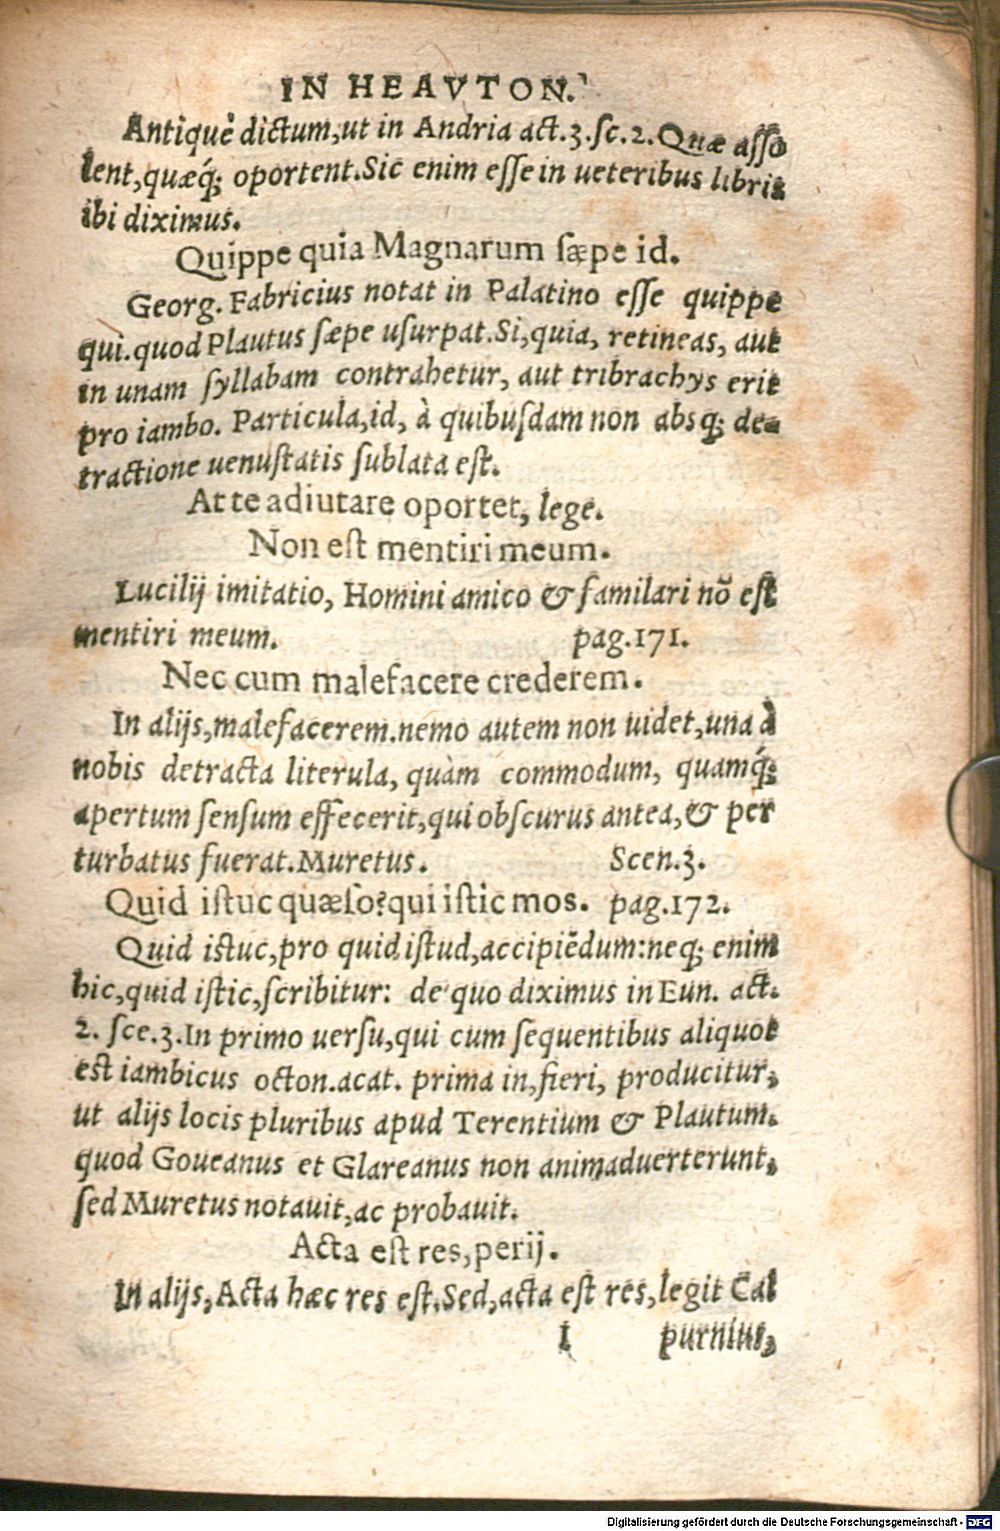 IN HEAVTON.
Antiquè dictum,ut in Andria act.3.sc.2.Quæ asso
lent,quæq́; oportent.Sic enim esse in ueteribus libris
ibi diximus.
Quippe quia Magnarum sæpe id.
Georg. Fabricius notat in Palatino esse quippe
qui.quod Plautus sæpe usurpat.Si,quia, retineas, aut
in unam syllabam contrahetur, aut tribrachys erit
pro iambo. Particula,id, à quibusdam non absq; de-
tractione uenustatis sublata est.
At te adiutare oportet, lege.
Non est mentiri meum.
Lucilij imitatio, Homini amico & familari nõ est
mentiri meum. pag.171.
Nec cum malefacere crederem.
In alijs,malefacerem.nemo autem non uidet,una à
nobis detracta literula, quàm commodum, quamq́;
apertum sensum effecerit,qui obscurus antea,& per
turbatus fuerat.Muretus. Scen.3.
Quid istuc quæso?qui istic mos. pag.172.
Quid istuc,pro quid istud,accipiẽdum:neq; enim
hic,quid istic,scribitur: de quo diximus in Eun. act.
2. sce.3.In primo uersu,qui cum sequentibus aliquot
est iambicus octon.acat. prima in,fieri, producitur,
ut alijs locis pluribus apud Terentium & Plautum.
quod Goueanus et Glareanus non animaduerterunt,
sed Muretus notauit,ac probauit.
Acta est res,perij.
In alijs,Acta hæc res est.Sed,acta est res,legit Cal
I purnius,
Digitalisierung gefördert durch die Deutsche Forschungsgemeinschaft - DFG